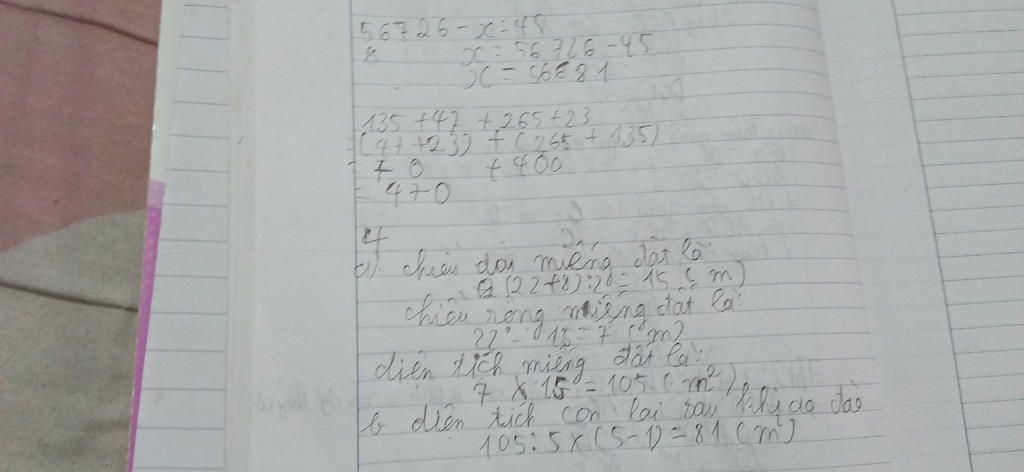 56726 - x = 45
x = 56726 - 45
x = 56681
135 + 47 + 265 + 23
= (47 + 23) + (265 + 135)
= 70 + 400
= 470
4
a) chiều dài miếng đất là:
(22 + 8) : 2 = 15 (m)
chiều rộng miếng đất là:
22 - 15 = 7 (m)
diện tích miếng đất là:
7 x 15 = 105 (m²)
b diện tích còn lại sau khi đào
105 : 5 x (5 - 1) = 81 (m²)